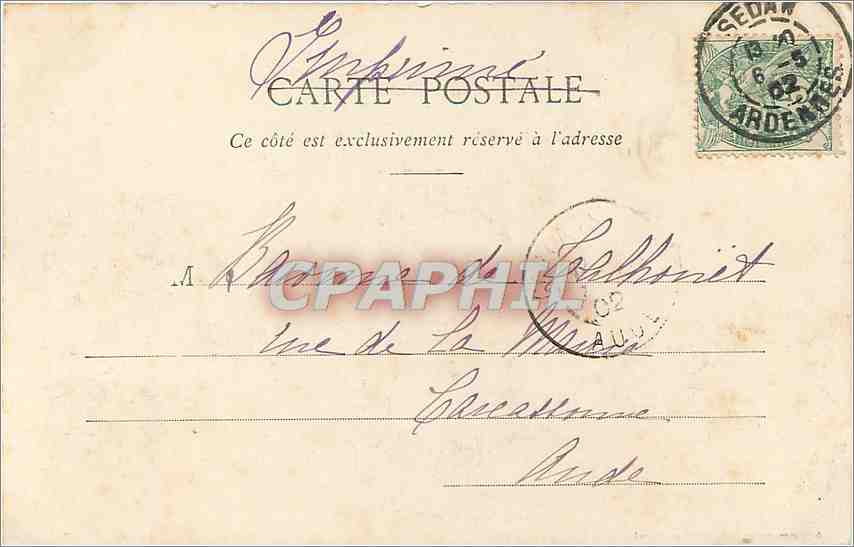 Imprimé
CARTE POSTALE
Ce côté est exclusivement réservé à l'adresse
SEDAN
6 -5
02
ARDENNES
M Baronne de Toulhouët
rue de La Mairie
Carcassonne
Aude
02
AUDE
CPAPHIL